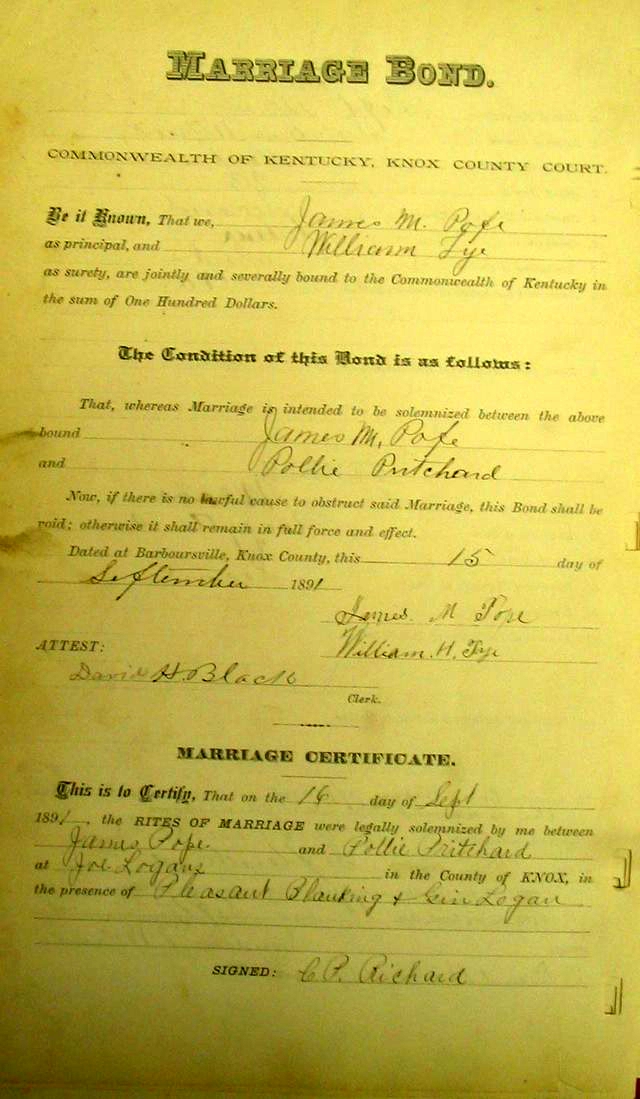 MARRIAGE BOND.
COMMONWEALTH OF KENTUCKY, KNOX COUNTY COURT.
Be it Known, That we, James M. Pope
as principal, and William Tye
as surety, are jointly and severally bound to the Commonwealth of Kentucky in
the sum of One Hundred Dollars.
The Condition of this Bond is as follows:
That, whereas Marriage is intended to be solemnized between the above
bound James M. Pope
and Pollie Pritchard
Now, if there is no lawful cause to obstruct said Marriage, this Bond shall be
void; otherwise it shall remain in full force and effect.
Dated at Barboursville, Knox County, this 15 day of
September 1891
James M Pope
ATTEST: William H. Tye
David H. Black
Clerk.
MARRIAGE CERTIFICATE.
This is to Certify, That on the 16 day of Sept
1891, the RITES OF MARRIAGE were legally solemnized by me between
James Pope and Pollie Pritchard
at Joe Logans in the County of KNOX, in
the presence of Pleasant & Gin Logan
SIGNED: C P. Richard